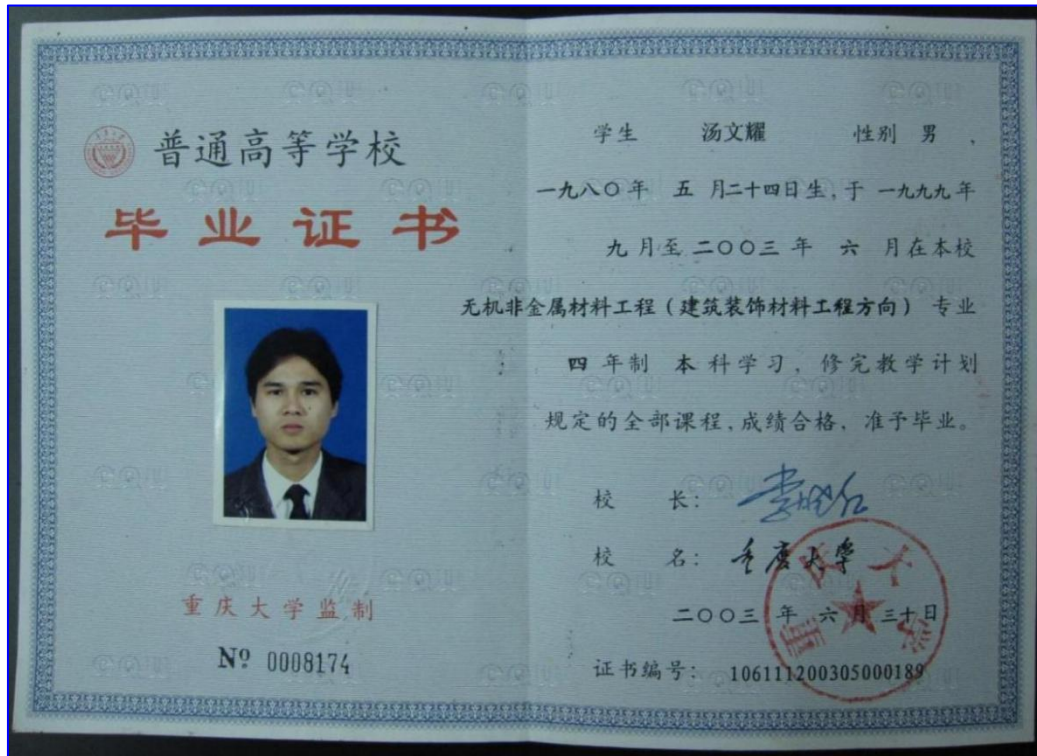 普通高等学校
毕业证书
重庆大学监制
Nº 0008174
学生 汤文耀 性别 男 ,
一九八〇年 五 月二十四日生,于 一九九九年
九 月至 二〇〇三 年 六 月在本校
无机非金属材料工程(建筑装饰材料工程方向) 专业
四 年制 本 科学习,修完教学计划
规定的全部课程,成绩合格、准予毕业。
校 长: 李晓红
校 名: 重庆大学
二〇〇三 年 六 月 三十日
证书编号: 106111200305000189
重庆大学